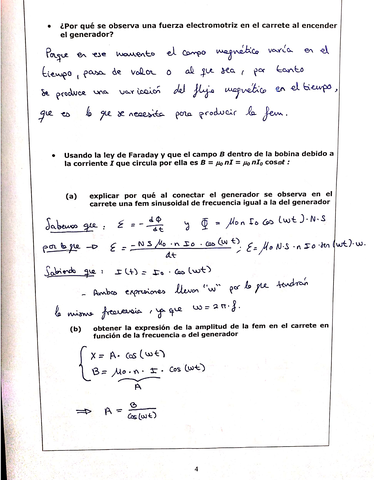 • ¿Por qué se observa una fuerza electromotriz en el carrete al encender
el generador?
Porque en ese momento el campo magnético varía en el
tiempo, pasa de valor 0 al que sea, por tanto
se produce una variación del flujo magnético en el tiempo,
que es lo que se necesita para producir la fem.
• Usando la ley de Faraday y que el campo B dentro de la bobina debido a
la corriente I que circula por ella es B = μ₀ nI = μ₀ nI₀ cosωt :
(a) explicar por qué al conectar el generador se observa en el
carrete una fem sinusoidal de frecuencia igual a la del generador
Sabemos que : ε = - dΦ/dt y Φ = μ₀ n I₀ cos (ωt) · N · S
por lo que → ε = - N S μ₀ · n I₀ · cos (ωt) / dt ; ε = μ₀ N · S · n I₀ · sen (ωt) · ω.
Sabiendo que : I (t) = I₀ · cos (ωt)
- Ambas expresiones llevan "ω" por lo que tendrán
la misma frecuencia, ya que ω = 2π · f.
(b) obtener la expresión de la amplitud de la fem en el carrete en
función de la frecuencia ω del generador
{ X = A · cos (ωt)
B = μ₀ · n · I · cos (ωt)
A
⇒ A = B / cos (ωt)
4